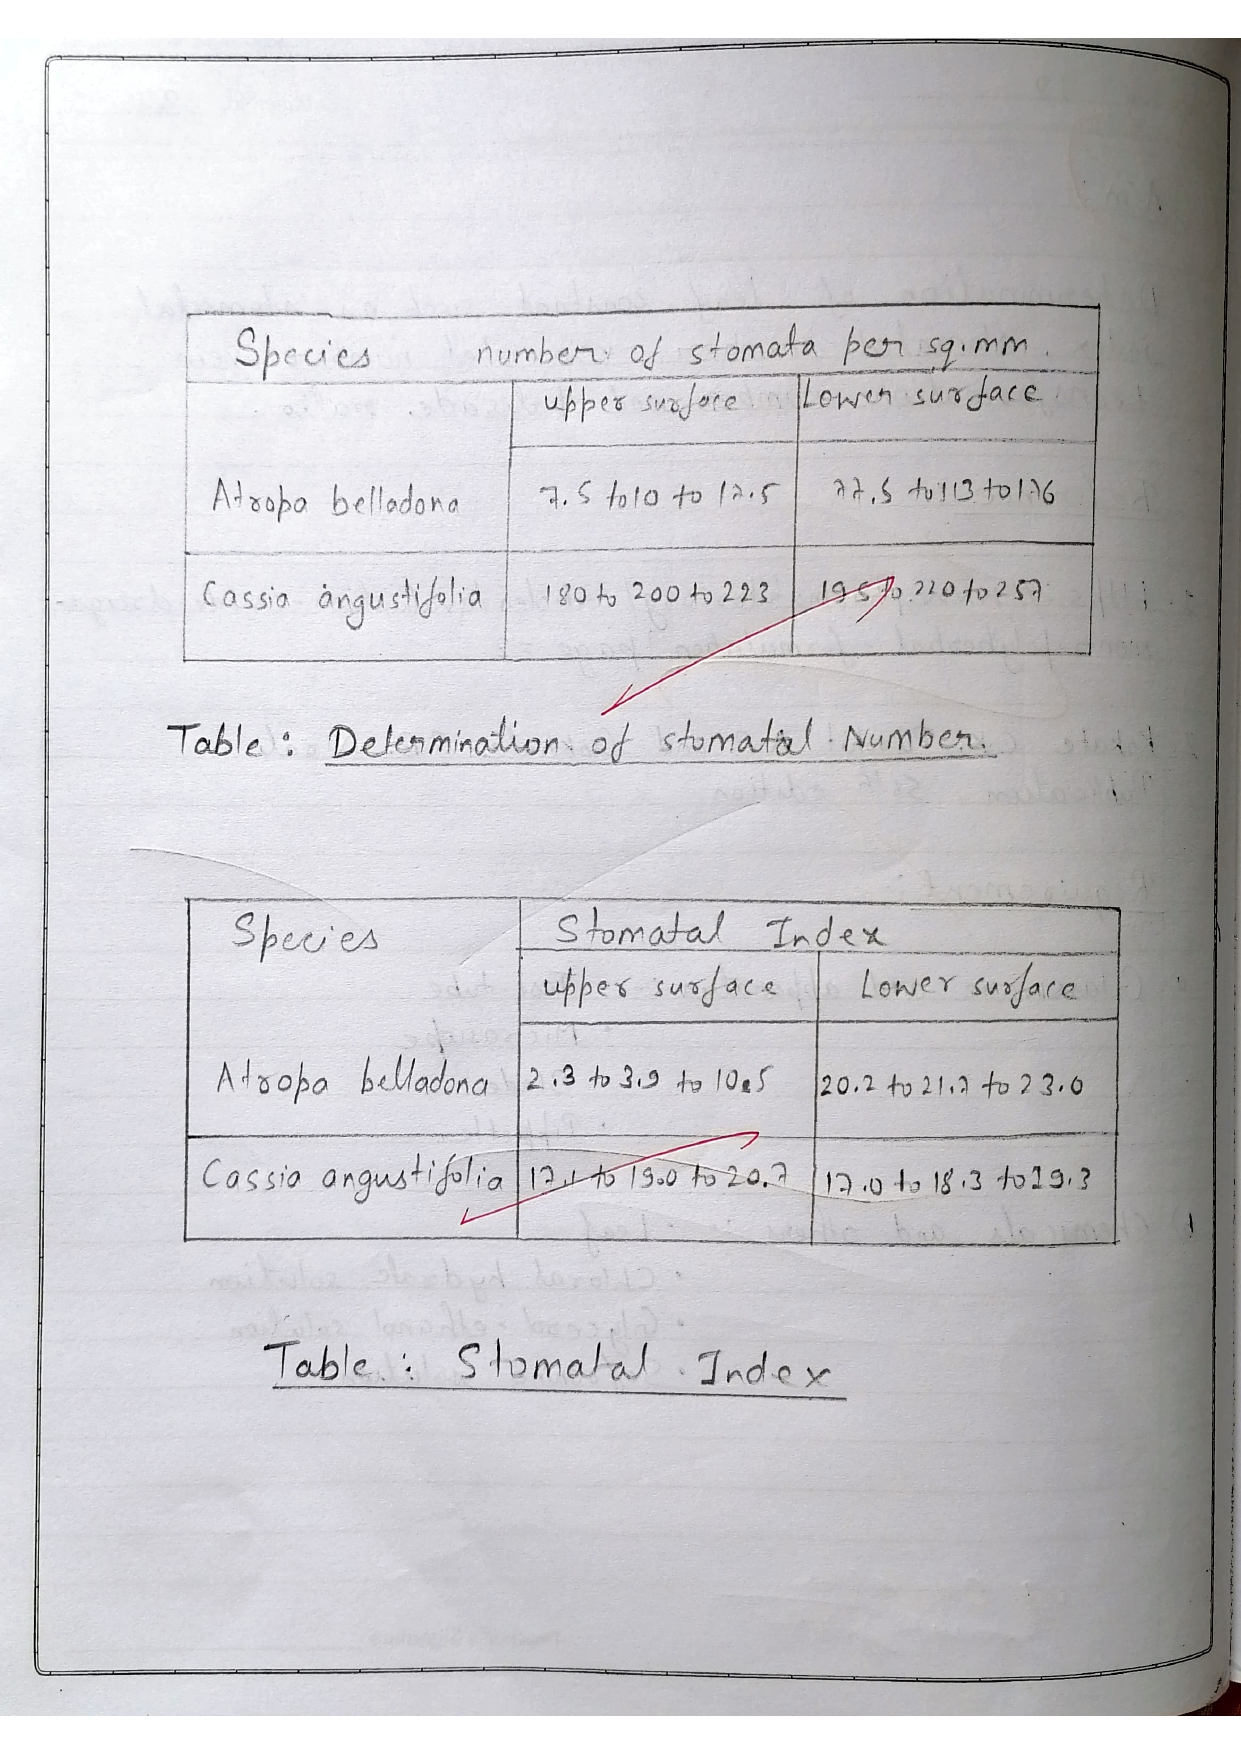 Species number of stomata per sq.mm
upper surface Lower surface
Atropa belladona 7.5 to 10 to 17.5 77.5 to 113 to 176
Cassia angustifolia 180 to 200 to 223 195 to 220 to 257
Table : Determination of stomatal Number.
Species Stomatal Index
upper surface Lower surface
Atropa belladona 2.3 to 3.9 to 10.5 20.2 to 21.7 to 23.0
Cassia angustifolia 17.1 to 19.0 to 20.7 17.0 to 18.3 to 19.3
Table : Stomatal Index